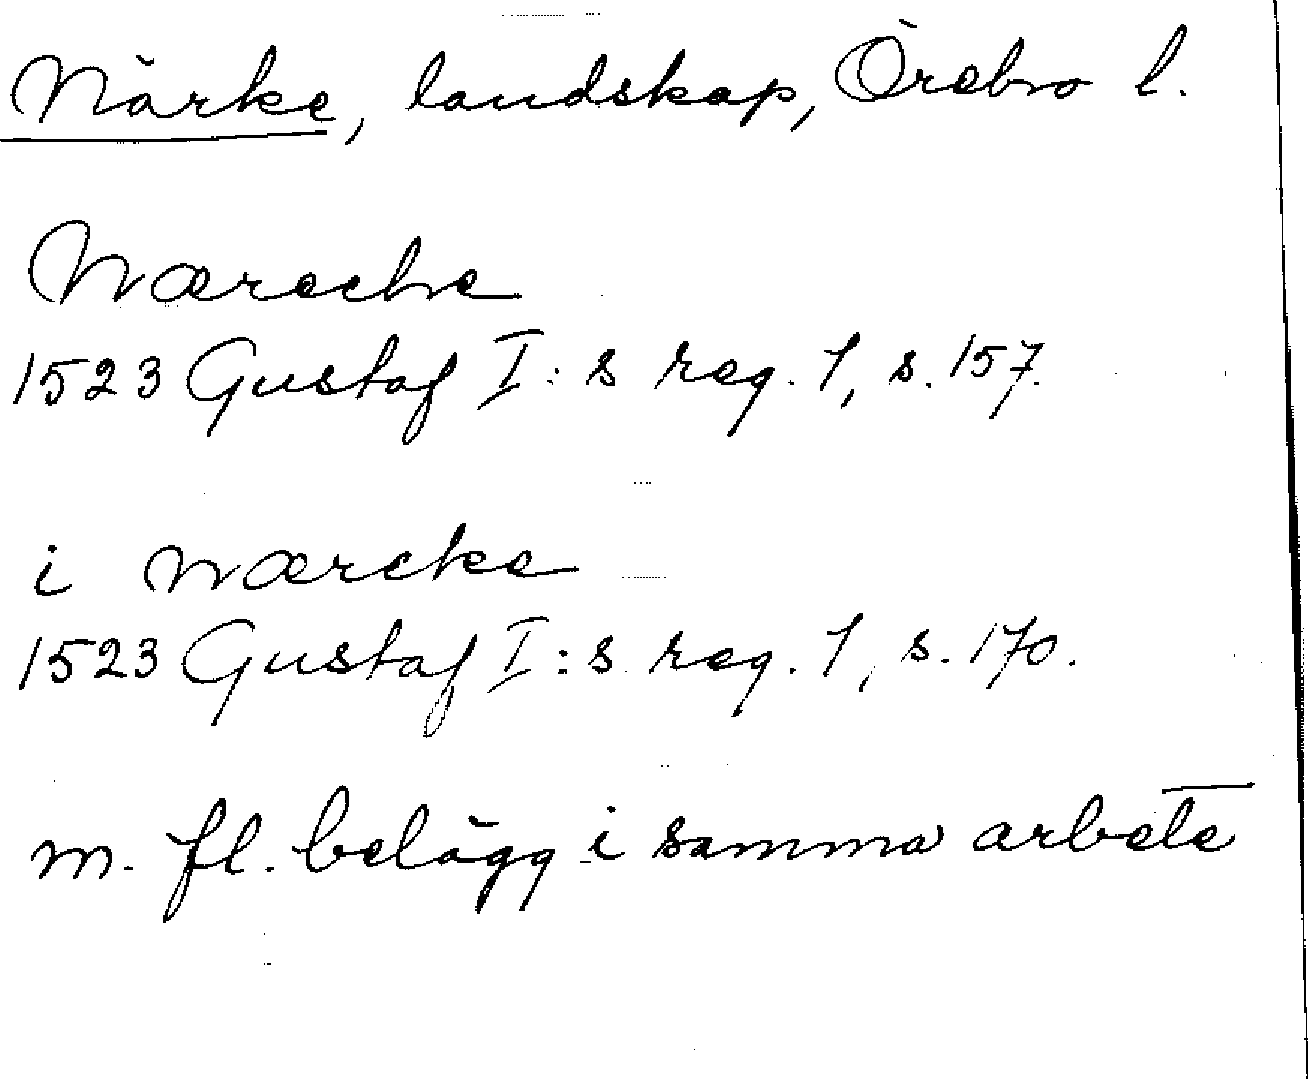 Närke, landskap, Örebro l.
Næreche
1523 Gustaf I:s reg. 1, s. 157.
i nærcke
1523 Gustaf I:s reg. 1, s. 170.
m. fl. belägg i samma arbete